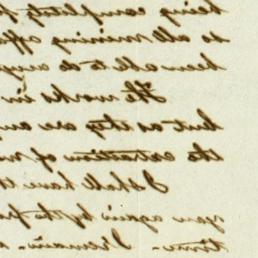 being completely
so all mining
been able to do any
The works in
but as they are
the extraction of
I shall have
you again by the
time. I remain